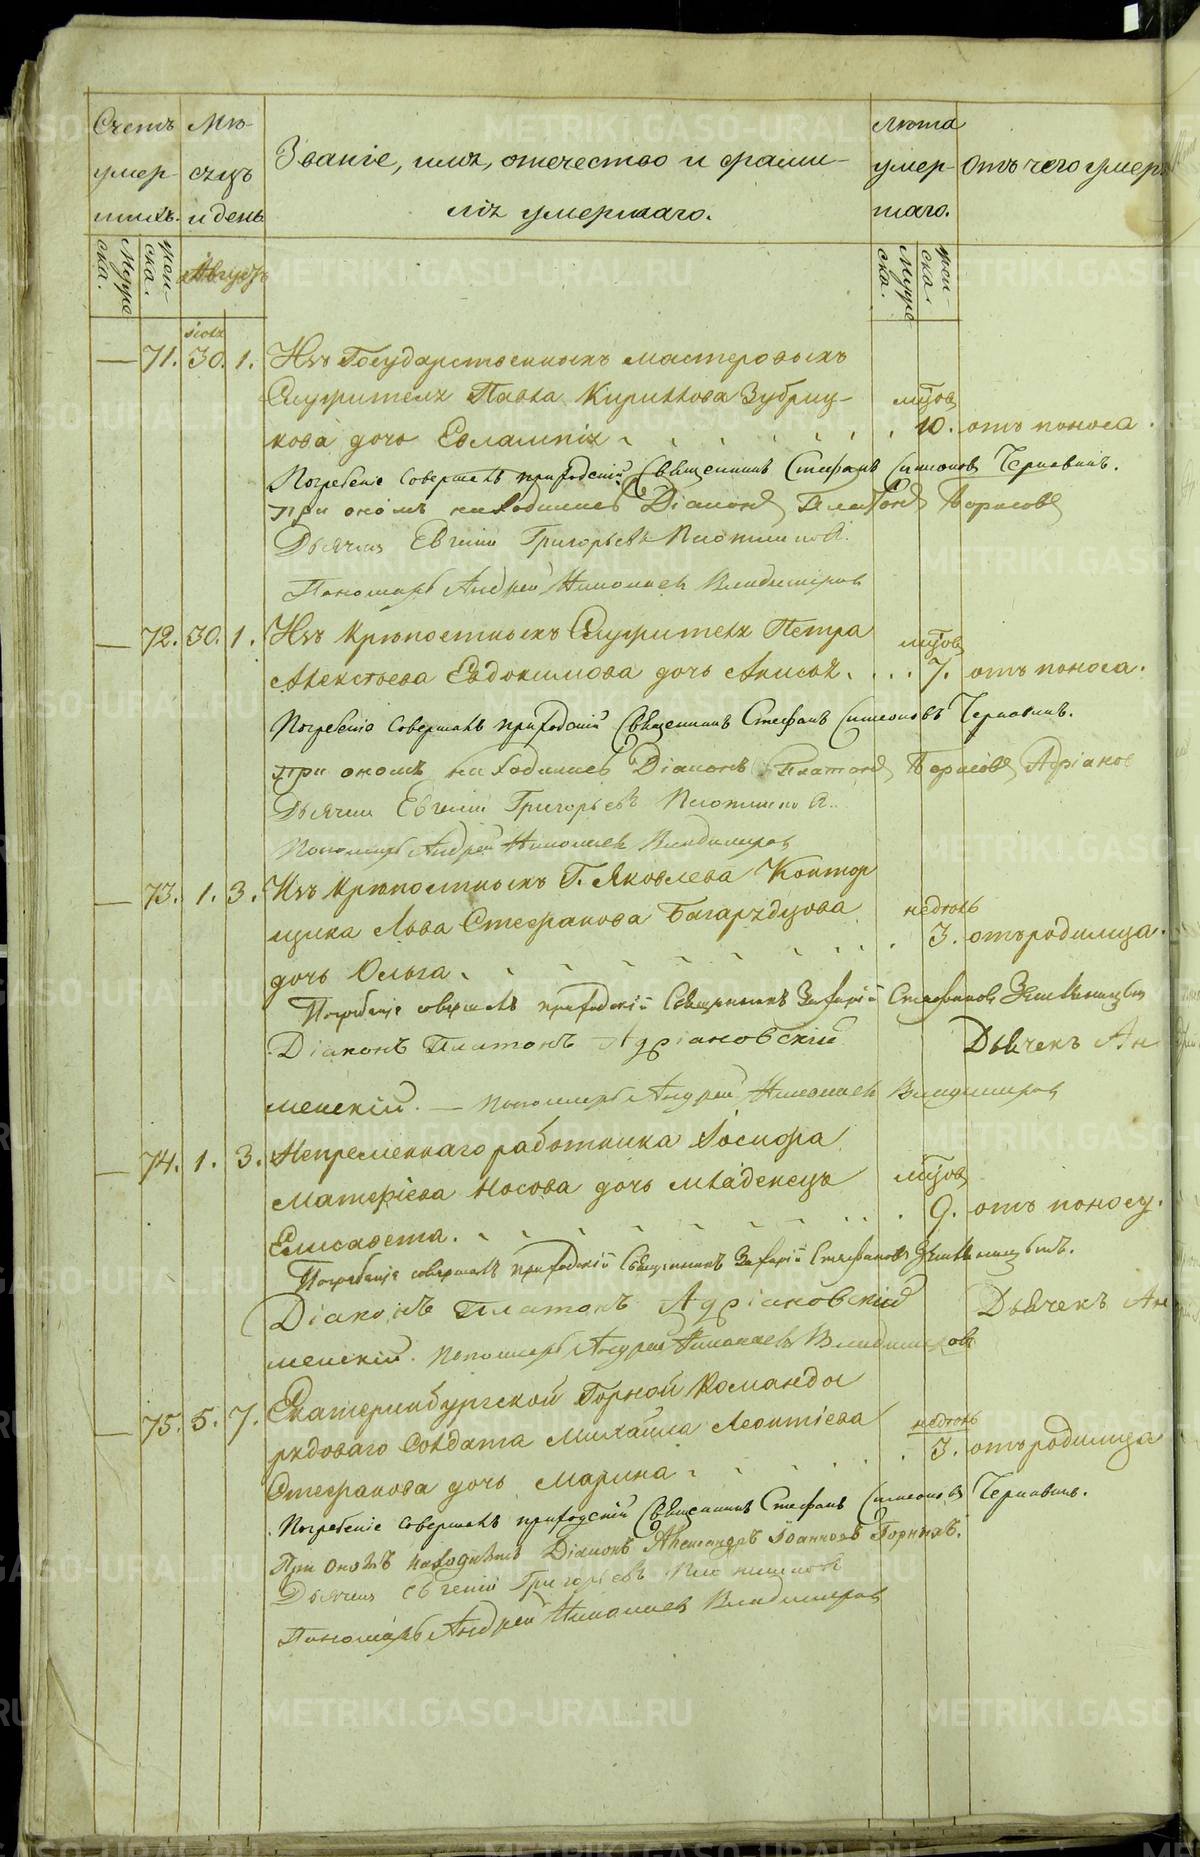 Счетъ умер-
шихъ.
Мѣ-
сяцъ
и день
Званіе, имя, отечество и фами-
лія умершаго.
Лѣта
умер-
шаго.
Отъ чего умеръ
Муже
ска.
жен-
ска.
Августъ
Муже
ска.
жен-
ска.
іюля
— 71. 30. 1. Изъ Государственныхъ мастеровыхъ
Служителя Павла Кирилова Зубриц-
кова дочь Евлампія мѣсяцов 10. отъ поноса.
Погребеніе совершалъ приходскій Священникъ Стефанъ Симеоновъ Чернавинъ.
При ономъ находились Діаконъ Платонъ Борисовъ
Дьячекъ Евгеній Григорьевъ
Пономарь Андрей Николаевъ Владимировъ
— 72. 30. 1. Изъ крѣпостныхъ Служителя Петра
Алексѣева Евдокимова дочь Анисья. мѣсяцов 7. отъ поноса.
Погребеніе совершалъ приходскій Священникъ Стефанъ Симеоновъ Чернавинъ.
При ономъ находились Діаконъ Платонъ Борисовъ
Дьячекъ Евгеній Григорьевъ
Пономарь Андрей Николаевъ Владимировъ
— 73. 1. 3. Изъ крѣпостныхъ Г. Яковлева Контор
щика Льва Стефанова Багарядцова
дочь Ольга. недѣль 3. отъ родимца.
Погребеніе совершалъ приходскій Священникъ Захарій Стефановъ
Діаконъ Платонъ Адріановскій Дьячекъ Ан
менскій. — Пономарь Андрей Николаевъ Владимировъ
— 74. 1. 3. Непремѣннаго работника Іосифа
Матфіева Носова дочь младенецъ
Елисавета. мѣсяцов 9. отъ поносу.
Погребеніе совершалъ приходскій Священникъ Захарій Стефановъ
Діаконъ Платонъ Адріановскій Дьячекъ Ан
менскій. Пономарь Андрей Николаевъ Владимировъ
— 75. 5. 7. Екатеринбургской Горной Команды
рядоваго Солдата Михаила Леонтіева
Стефанова дочь Марина недѣль 3. отъ родимца
Погребеніе совершалъ приходскій Священникъ Стефанъ Симеоновъ Чернавинъ.
При ономъ находились Діаконъ Александръ Іоанновъ Горныхъ.
Дьячекъ Евгеній Григорьевъ
Пономарь Андрей Николаевъ Владимировъ
METRIKI.GASO-URAL.RU